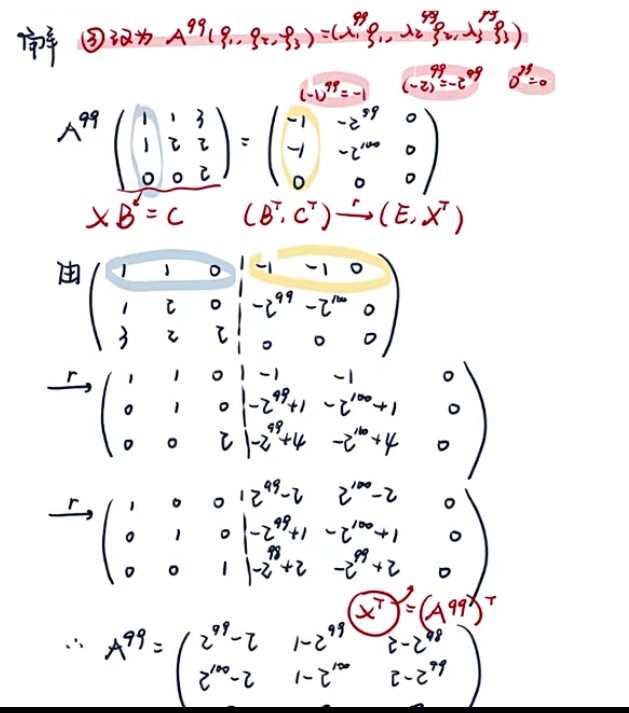 解 ③改为 A⁹⁹(ξ₁, ξ₂, ξ₃)=(λ₁⁹⁹ξ₁, λ₂⁹⁹ξ₂, λ₃⁹⁹ξ₃)
(-1)⁹⁹=-1 (-2)⁹⁹=-2⁹⁹ 0⁹⁹=0
A⁹⁹ ( 1 1 3 ) = ( -1 -2⁹⁹ 0 )
1 2 2 -1 -2¹⁰⁰ 0
0 0 2 0 0 0
X B = C (Bᵀ, Cᵀ) →r (E, Xᵀ)
由 ( 1 1 0 | -1 -1 0 )
1 2 0 | -2⁹⁹ -2¹⁰⁰ 0
3 2 2 | 0 0 0
→r ( 1 1 0 | -1 -1 0 )
0 1 0 | -2⁹⁹+1 -2¹⁰⁰+1 0
0 0 2 | -2⁹⁹+4 -2¹⁰⁰+4 0
→r ( 1 0 0 | 2⁹⁹-2 2¹⁰⁰-2 0 )
0 1 0 | -2⁹⁹+1 -2¹⁰⁰+1 0
0 0 1 | -2⁹⁸+2 -2⁹⁹+2 0
Xᵀ=(A⁹⁹)ᵀ
∴ A⁹⁹ = ( 2⁹⁹-2 1-2⁹⁹ 2-2⁹⁸ )
2¹⁰⁰-2 1-2¹⁰⁰ 2-2⁹⁹